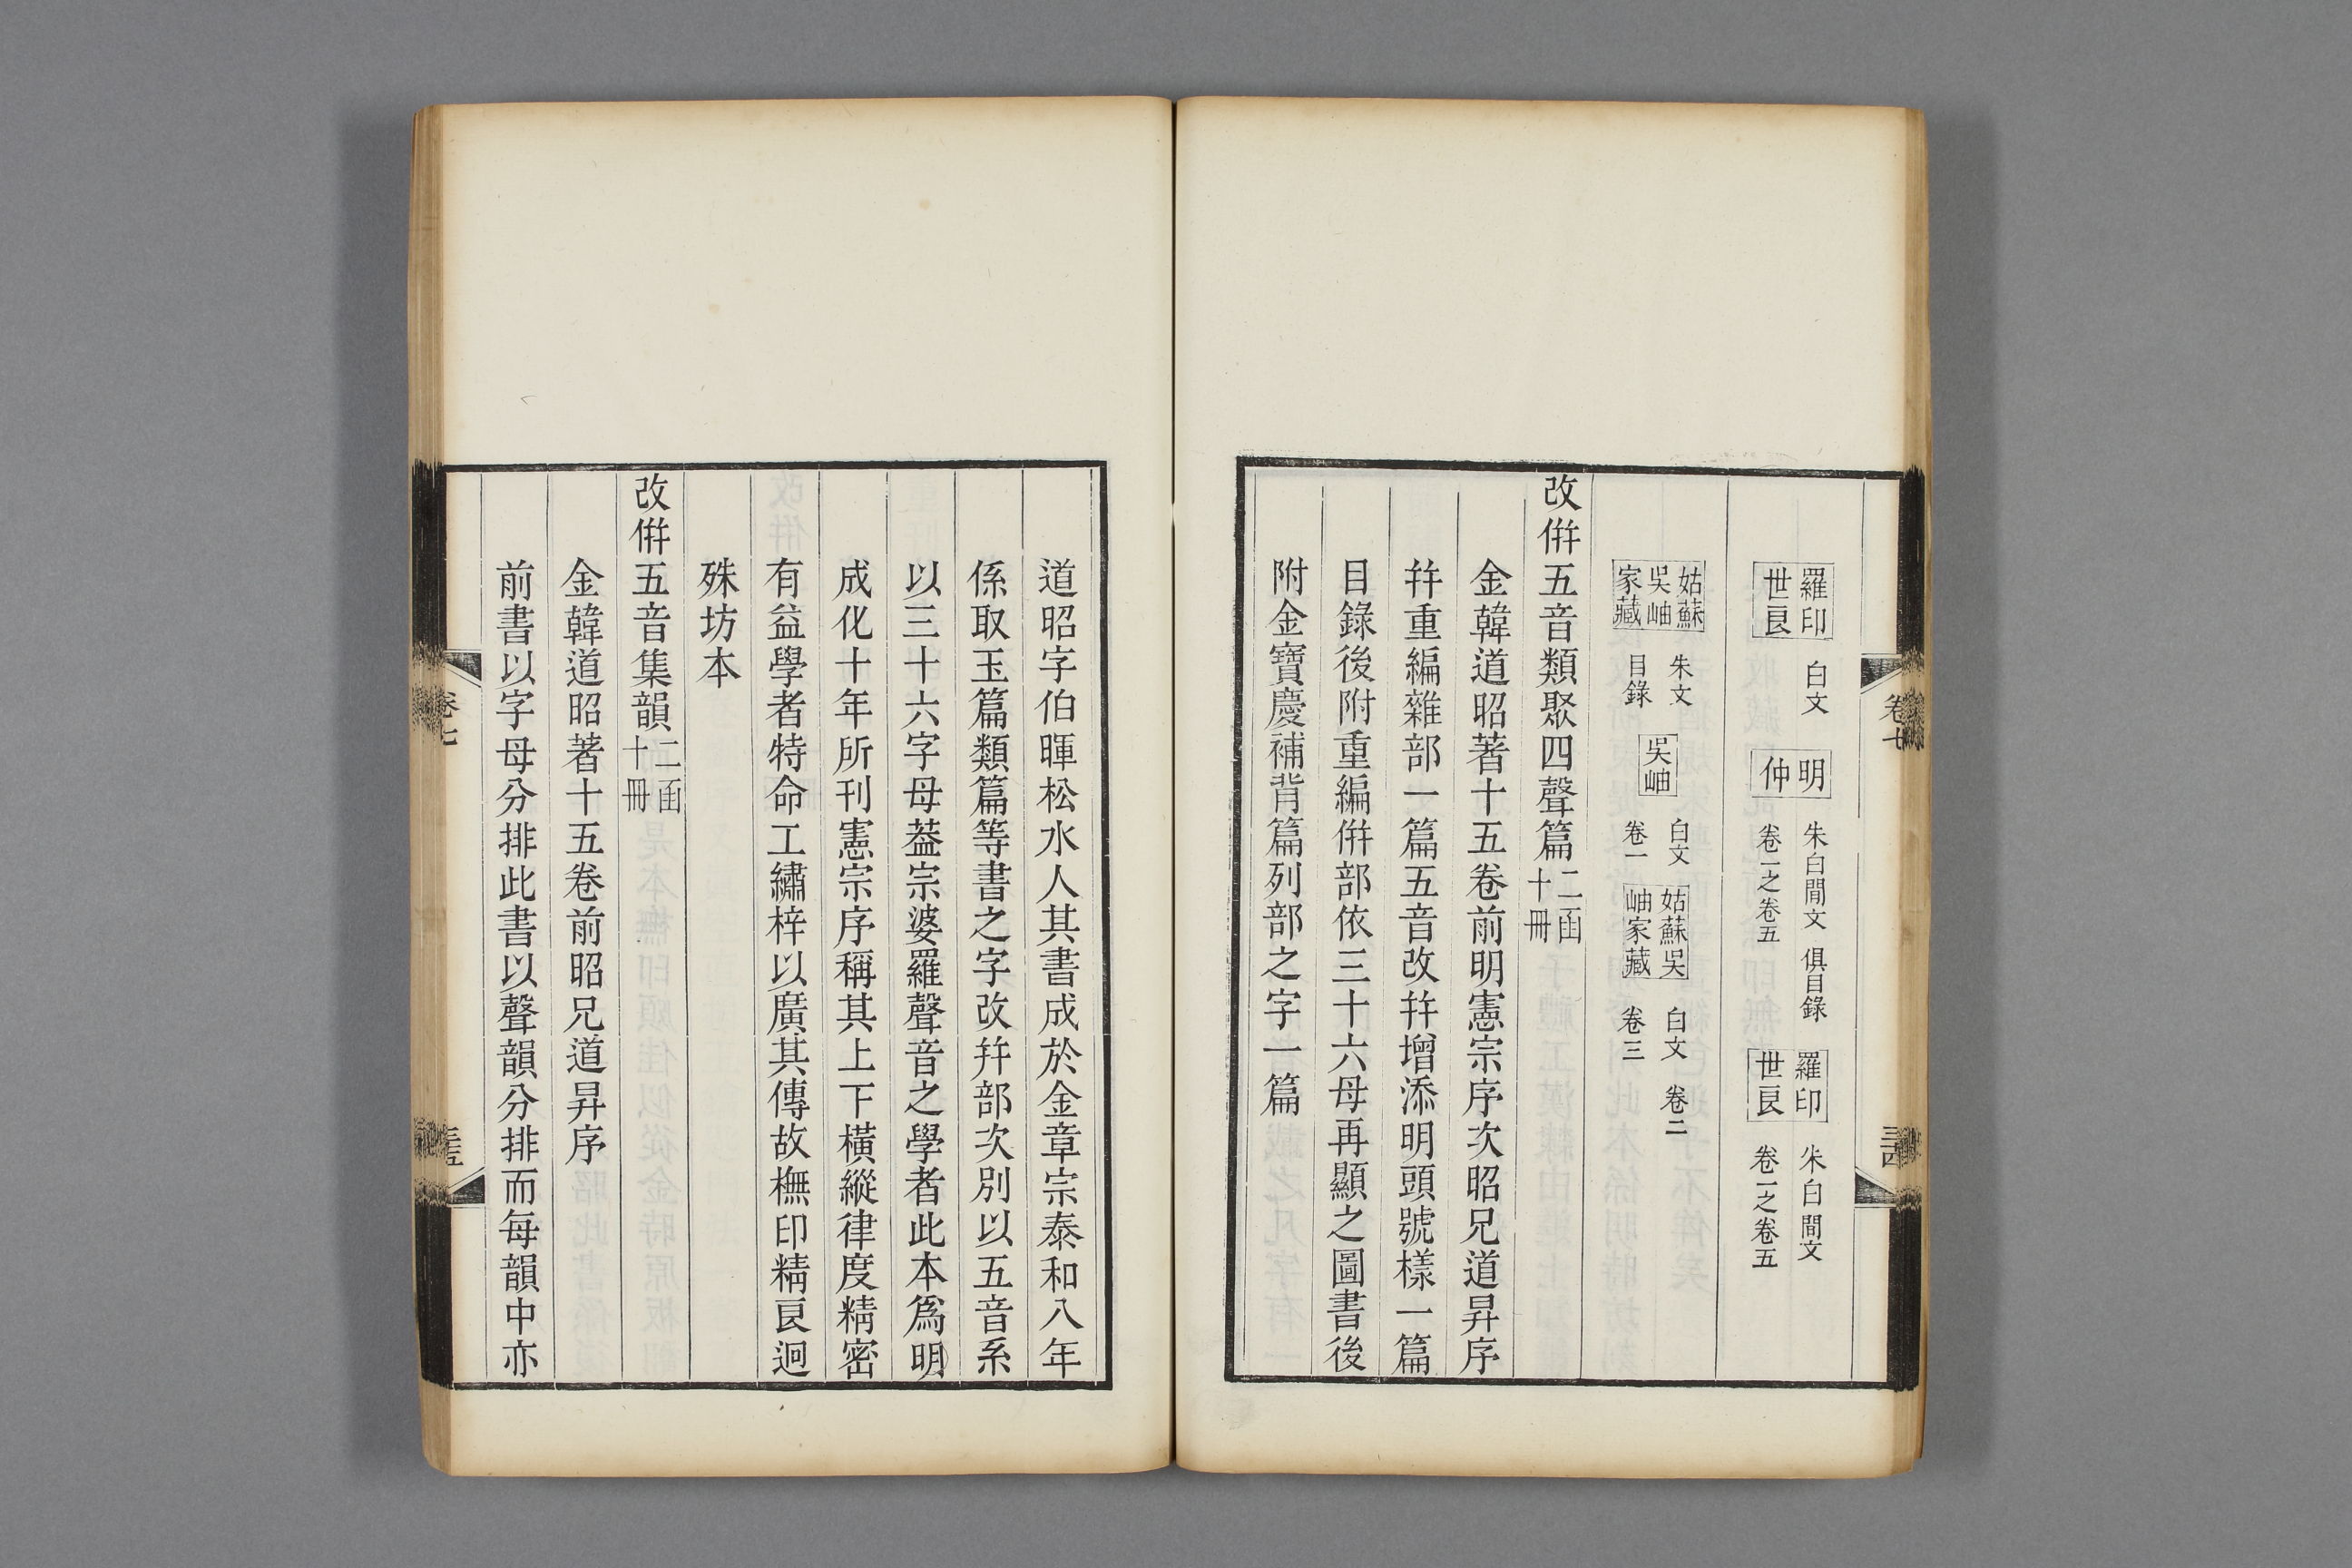 羅印世良 白文 明仲 朱白閒文 俱目錄 卷一之卷五 羅印世良 朱白閒文 卷一之卷五
姑蘇吳岫家藏 朱文 目錄 吳岫 白文 卷一 姑蘇吳岫家藏 白文 卷二 卷三
改倂五音類聚四聲篇 二函 十冊
金韓道昭著十五卷前明憲宗序次昭兄道昇序
幷重編雜部一篇五音改幷增添明頭號樣一篇
目錄後附重編倂部依三十六母再顯之圖書後
附金寶慶補背篇列部之字一篇
卷七
三十四
道昭字伯暉松水人其書成於金章宗泰和八年
係取玉篇類篇等書之字改幷部次別以五音系
以三十六字母葢宗婆羅聲音之學者此本爲明
成化十年所刊憲宗序稱其上下橫縱律度精密
有益學者特命工繡梓以廣其傳故橅印精良迥
殊坊本
改倂五音集韻 二函 十冊
金韓道昭著十五卷前昭兄道昇序
前書以字母分排此書以聲韻分排而每韻中亦
卷七
三十五